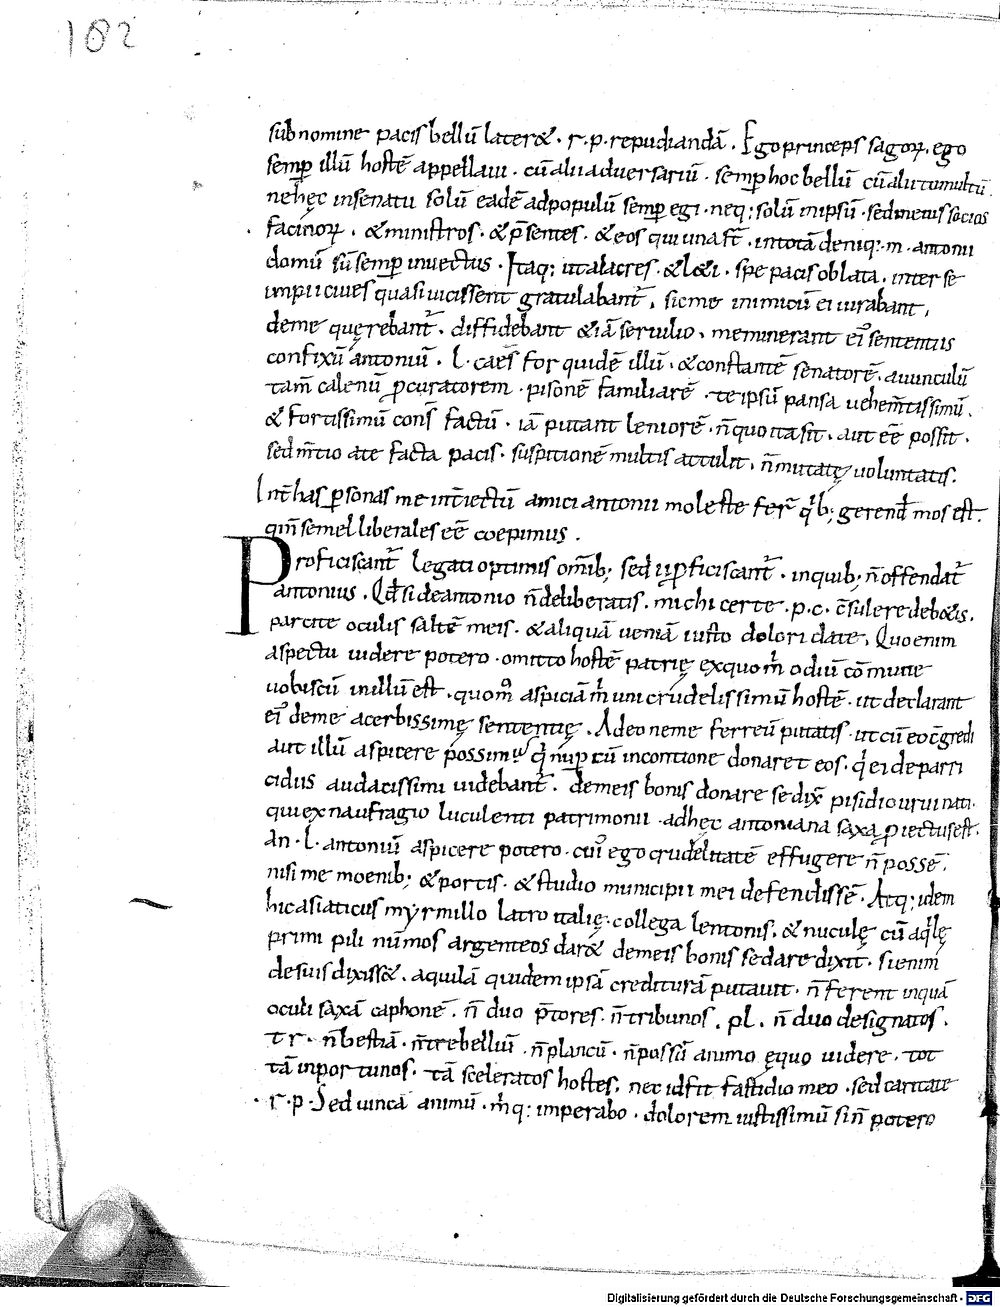 182
sub nomine pacis bellū later&. r.p. repudiandā. Ego princeps sagoꝝ. ego
semꝑ illū hostē appellaui. cū alii aduersariū. semꝑ hoc bellū cū alii tumultū.
nehęc insenatu solū eadē adpopulū semꝑ egi. neq; solū inipsū. sed ineius socios
facinoꝝ. & ministros. & p̄sentes. & eos qui una st̄. intotā deniq; m. antonii
domū sū semꝑ inuectus. Itaq; ut alacres. & l&i. spe pacis oblata. inter se
impii ciues quasi uicissent gratulabant᷑. sic me inimicū ei iurabant,
deme quęrebant᷑. diffidebant & iā seruilio. meminerant ei᷒ sententiis
confixū antoniū. l. caes̄ for quidē illū. & constantē senatorē. auunculū
tam̄ calenū ꝓcuratorem. pisonē familiarē. te ipsū pansa uehem̄tissimū.
& fortissimū cons̄ factū. iā putant leniorē. n̄ quo ita sit. aut eē possit.
sed m̄tio ate facta pacis. suspitionē multis attulit. n̄ mutatę uoluntatis.
Int̄ has ꝑsonas me int̄iectū amici antonii moleste fer᷑ qͥb; gerend̄ mos est.
qm̄ semel liberales eē coepimus.
Proficiscant᷑ legati optimis omīb; sed ii ꝓficiscant᷑. inquib; n̄ offendat᷑
antonius. Qd̄ si deantonio n̄ deliberatis. michi certe. p.c. c̄sulere deb&is.
parcite oculis saltē meis. & aliquā ueniā iusto dolori date. Quo enim
aspectu uidere potero. omitto hostē patrię exquo m̄ odiū cōmune
uobiscū inillū est. quom᷒ aspiciā m̄ uni crudelissimū hostē. ut declarant
ei᷒ deme acerbissimę sententię. Adeo neme ferreū putatis. ut cū eo c̄gredi
aut illū aspicere possim qͥ nuꝑ cū incontione donaret eos. qͥ ei departi
cidiis audacissimi uidebant᷑. demeis bonis donare se dix̄ pisidio urui nati.
qui ex naufragio luculenti patrimonii. adhęc antoniana saxa ꝓiectus est.
An. l. antoniū aspicere potero. cui᷒ ego crudelitatē effugere n̄ possē,
nisi me moenib; & portis. & studio municipii mei defendissē. Atq; idem
hic asiaticus myrmillo latro italię. collega lentonis. & nuculę cū aqͥlę
primi pili nūmos argenteos dar& demeis bonis se dare dixit. si enim
desuis dixiss&. aquilā quidem ipsā crediturā putauit. n̄ ferent inquā
oculi saxā caphonē. n̄ duo p̄tores. n̄ tribunos. pl. n̄ duo designatos.
tr. n̄ bestiā. n̄ trebelliū. n̄ plancū. n̄ possū animo ęquo uidere. tot
tā inportunos. tā sceleratos hostes. nec id fit fastidio meo. sed caritate
r.p. Sed uincā animū. m̄q; imperabo. dolorem iustissimū si n̄ potero
Digitalisierung gefördert durch die Deutsche Forschungsgemeinschaft - DFG